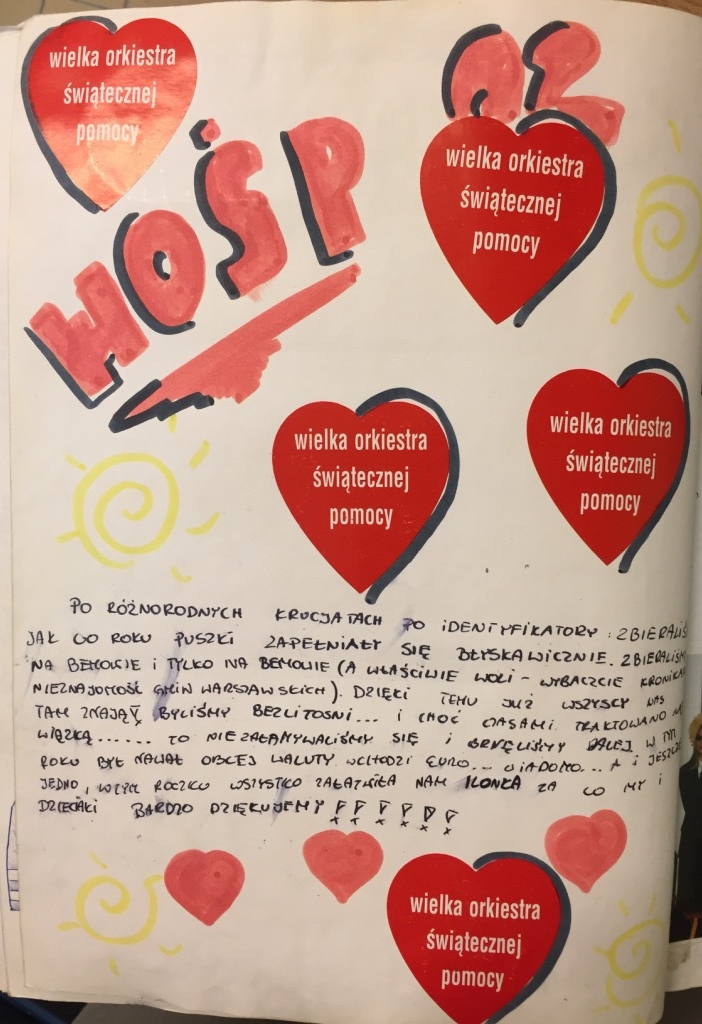 wielka orkiestra
świątecznej
pomocy
WOŚP
02
wielka orkiestra
świątecznej
pomocy
wielka orkiestra
świątecznej
pomocy
wielka orkiestra
świątecznej
pomocy
PO RÓŻNORODNYCH KRUCJATACH PO IDENTYFIKATORY, ZBIERALIŚ
JAK CO ROKU PUSZKI ZAPEŁNIAŁY SIĘ BŁYSKAWICZNIE. ZBIERALIŚM
NA BEMOWIE I TYLKO NA BEMOWIE (A WŁAŚCIWIE WOLI - WYBACZCIE KRONIKA
NIEZNAJOMOŚĆ GMIN WARSZAWSKICH). DZIĘKI TEMU JUŻ WSZYSCY NAS
TAM ZNAJĄ, BYLIŚMY BEZLITOŚNI... I CHOĆ CZASAMI TRAKTOWANO N
WIĄZKĄ...... TO NIE ZAŁAMYWALIŚMY SIĘ I DALEJ W TYM
ROKU BYŁ NAWAŁ OBCEJ WALUTY. WCHODZI EURO... WIADOMO... A I JESZCZE
JEDNO, W TYM ROCZKU WSZYSTKO ZAŁATWIŁA NAM ILONKA ZA CO MY I
DZIECIAKI BARDZO DZIĘKUJEMY !!!!!!
wielka orkiestra
świątecznej
pomocy